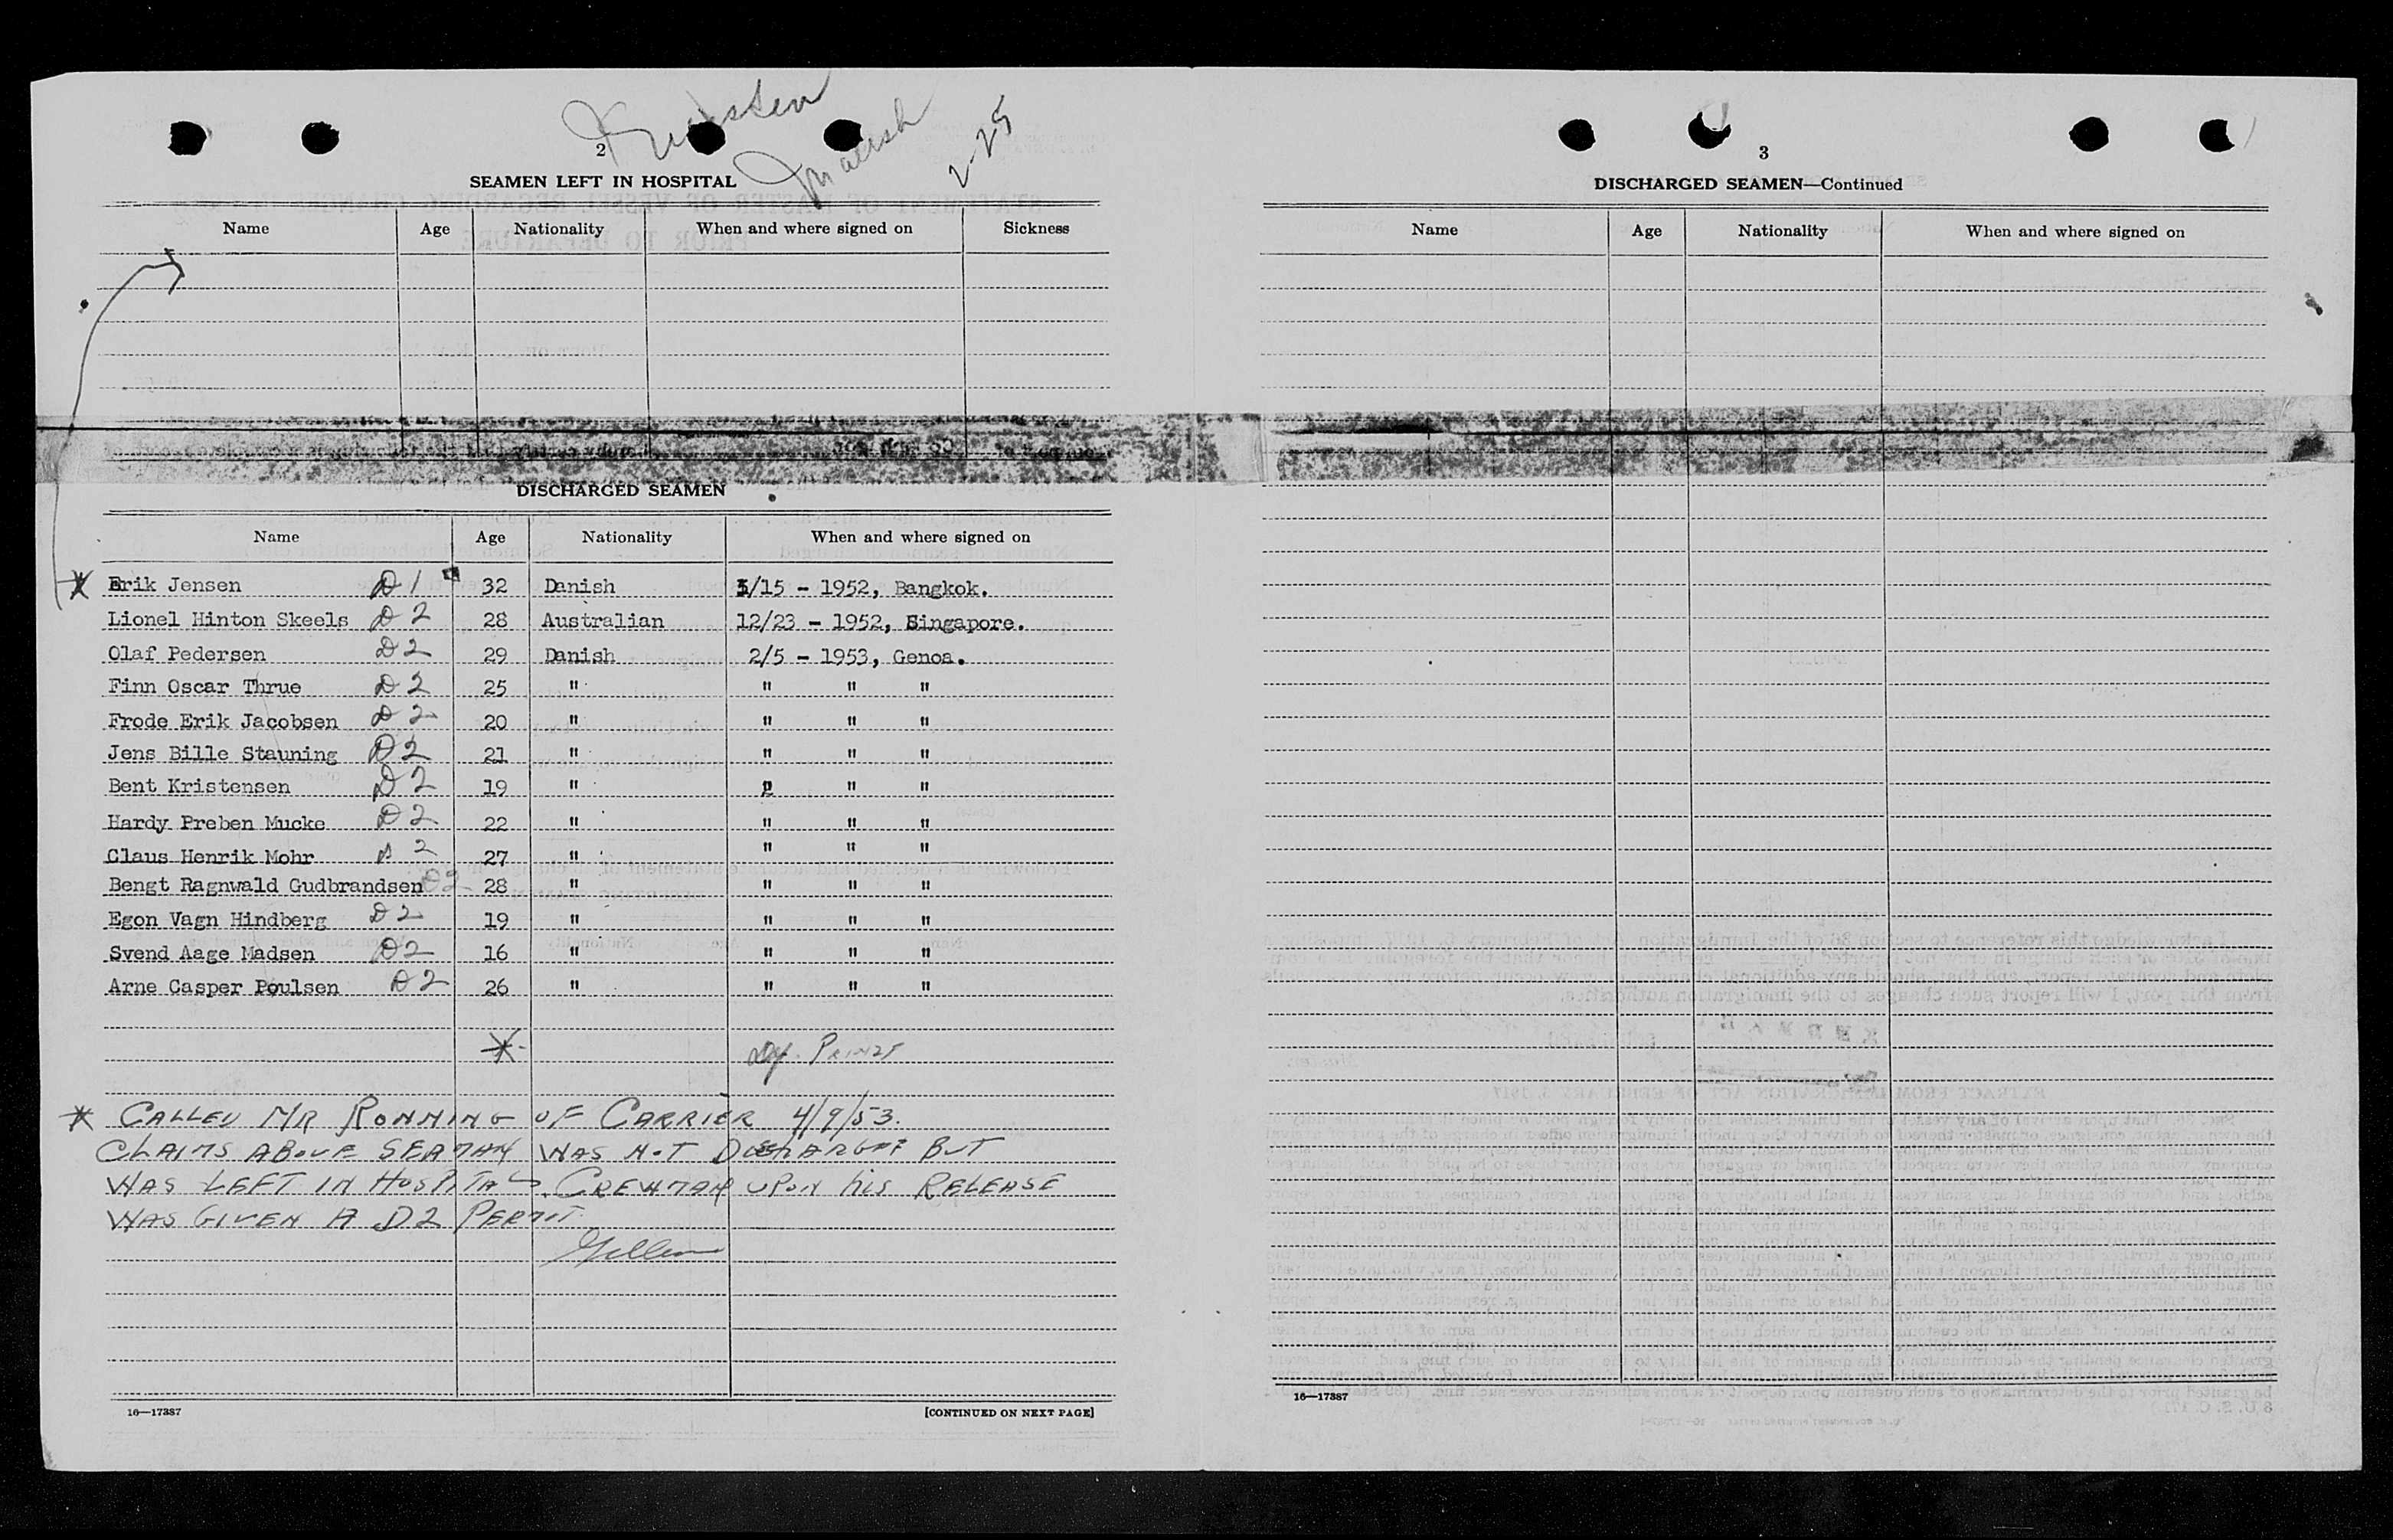 2
2-25
SEAMEN LEFT IN HOSPITAL
Name Age Nationality When and where signed on Sickness
DISCHARGED SEAMEN
Name Age Nationality When and where signed on
* Erik Jensen D1 32 Danish /15 - 1952, Bangkok.
Lionel Hinton Skeels D2 28 Australian 12/23 - 1952, Singapore.
Olaf Pedersen D2 29 Danish 2/5 - 1953, Genoa.
Finn Oscar Thrue D2 25 " " " "
Frode Erik Jacobsen D2 20 " " " "
Jens Bille Stauning D2 21 " " " "
Bent Kristensen D2 19 " " "
Hardy Preben Mucke D2 22 " " " "
Claus Henrik Mohr D2 27 " " " "
Bengt Ragnwald Gudbrandsen D2 28 " " " "
Egon Vagn Hindberg D2 19 " " " "
Svend Aage Madsen D2 16 " " " "
Arne Casper Poulsen D2 26 " " " "
*
* CALLED MR RONNING OF CARRIER 4/9/53.
CLAIMS ABOVE SEAMAN WAS NOT DISCHARGED BUT
WAS LEFT IN HOSPITAL. CREWMAN UPON his RELEASE
WAS GIVEN A D2 PERMIT.
16—17387 [CONTINUED ON NEXT PAGE]
3
DISCHARGED SEAMEN—Continued
Name Age Nationality When and where signed on
16—17387